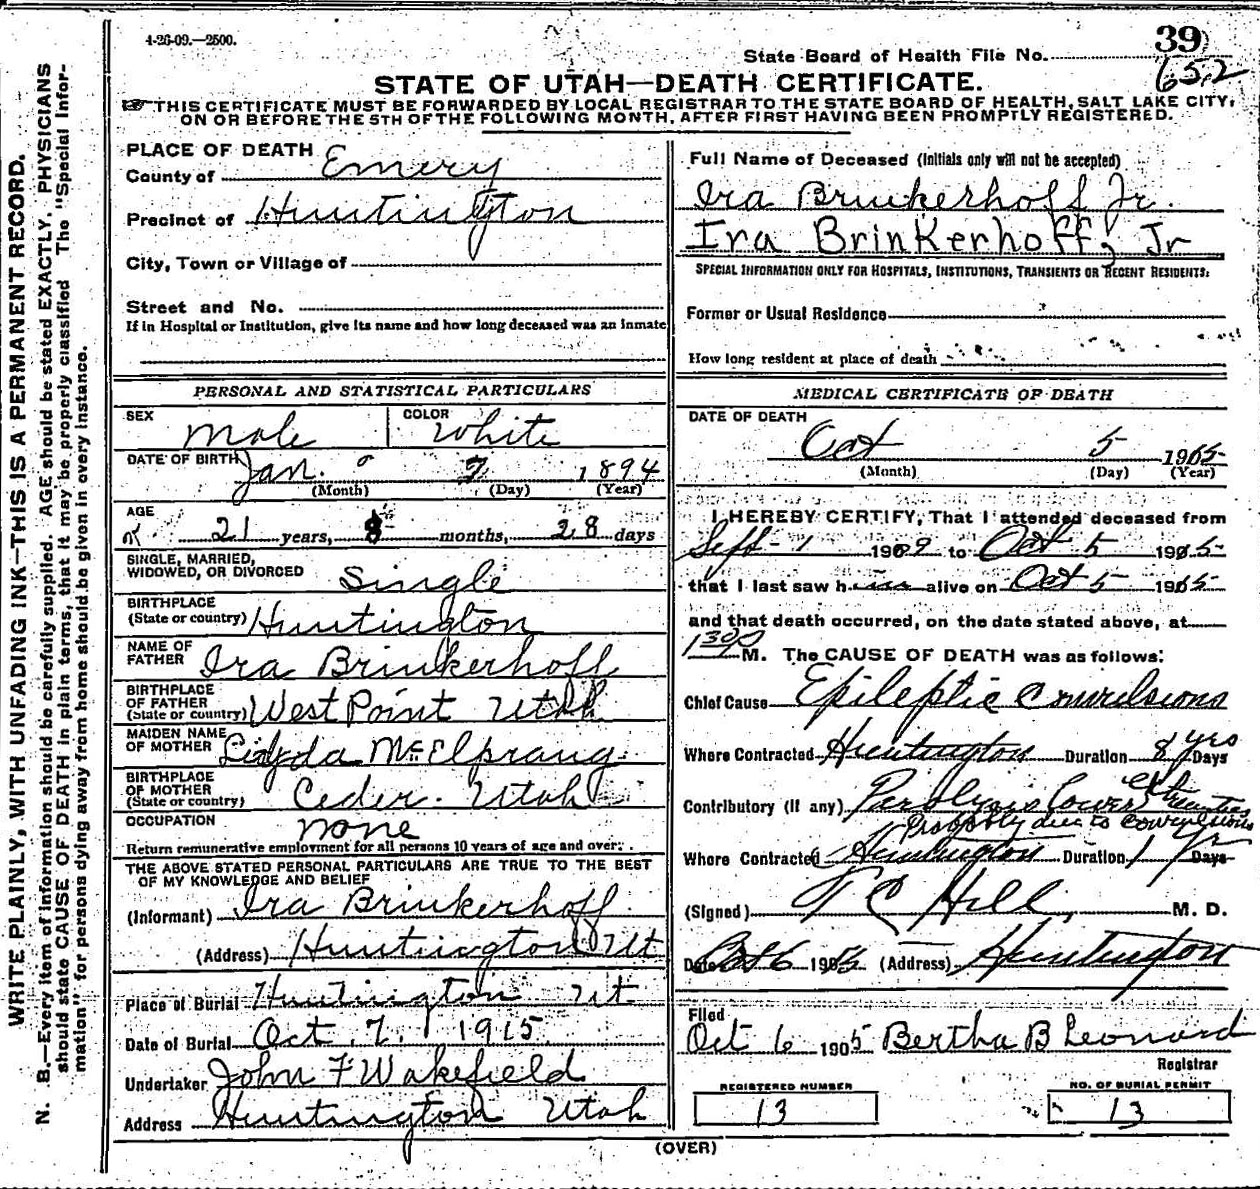 4-26-09.—2500.
39
State Board of Health File No. 652
STATE OF UTAH—DEATH CERTIFICATE.
THIS CERTIFICATE MUST BE FORWARDED BY LOCAL REGISTRAR TO THE STATE BOARD OF HEALTH, SALT LAKE CITY,
ON OR BEFORE THE 5TH OF THE FOLLOWING MONTH, AFTER FIRST HAVING BEEN PROMPTLY REGISTERED.
WRITE PLAINLY, WITH UNFADING INK—THIS IS A PERMANENT RECORD.
N. B.—Every item of information should be carefully supplied. AGE should be stated EXACTLY. PHYSICIANS
should state CAUSE OF DEATH in plain terms, that it may be properly classified The "Special Infor-
mation" for persons dying away from home should be given in every instance.
PLACE OF DEATH
County of Emery
Precinct of Huntington
City, Town or Village of
Street and No.
If in Hospital or Institution, give its name and how long deceased was an inmate
PERSONAL AND STATISTICAL PARTICULARS
SEX Male COLOR White
DATE OF BIRTH Jan. 7 1894
(Month) (Day) (Year)
AGE
21 years, 8 months, 28 days
SINGLE, MARRIED,
WIDOWED, OR DIVORCED Single
BIRTHPLACE
(State or country) Huntington
NAME OF
FATHER Ira Brinkerhoff
BIRTHPLACE
OF FATHER
(State or country) West Point Utah
MAIDEN NAME
OF MOTHER McElprang
BIRTHPLACE
OF MOTHER
(State or country) Ceder. Utah
OCCUPATION none
Return remunerative employment for all persons 10 years of age and over.
THE ABOVE STATED PERSONAL PARTICULARS ARE TRUE TO THE BEST
OF MY KNOWLEDGE AND BELIEF
(Informant) Ira Brinkerhoff.
(Address) Huntington Ut
Place of Burial Huntington Ut
Date of Burial Oct. 7. 1915
Undertaker John F Wakefield
Address Huntington Utah
Full Name of Deceased (Initials only will not be accepted)
Ira Brinkerhoff Jr.
Ira Brinkerhoff, Jr
SPECIAL INFORMATION ONLY FOR HOSPITALS, INSTITUTIONS, TRANSIENTS OR RECENT RESIDENTS:
Former or Usual Residence
How long resident at place of death
MEDICAL CERTIFICATE OF DEATH
DATE OF DEATH
Oct 5 1915
(Month) (Day) (Year)
I HEREBY CERTIFY, That I attended deceased from
Sept - 1 1909 to Oct 5 1915
that I last saw him alive on Oct 5 1915
and that death occurred, on the date stated above, at
130 P M. The CAUSE OF DEATH was as follows:
Chief Cause Epileptic Convulsions
Where Contracted Huntington Duration 8 yrs Days
Contributory (If any) Paralysis lower
Probably due to convulsions
Where Contracted Huntington Duration 1 Days
(Signed) T C Hill, M. D.
Date Oct 6 1915 (Address) Huntington
Filed
Oct 6 1905 Bertha B Leonard
Registrar
REGISTERED NUMBER
13
NO. OF BURIAL PERMIT
13
(OVER)